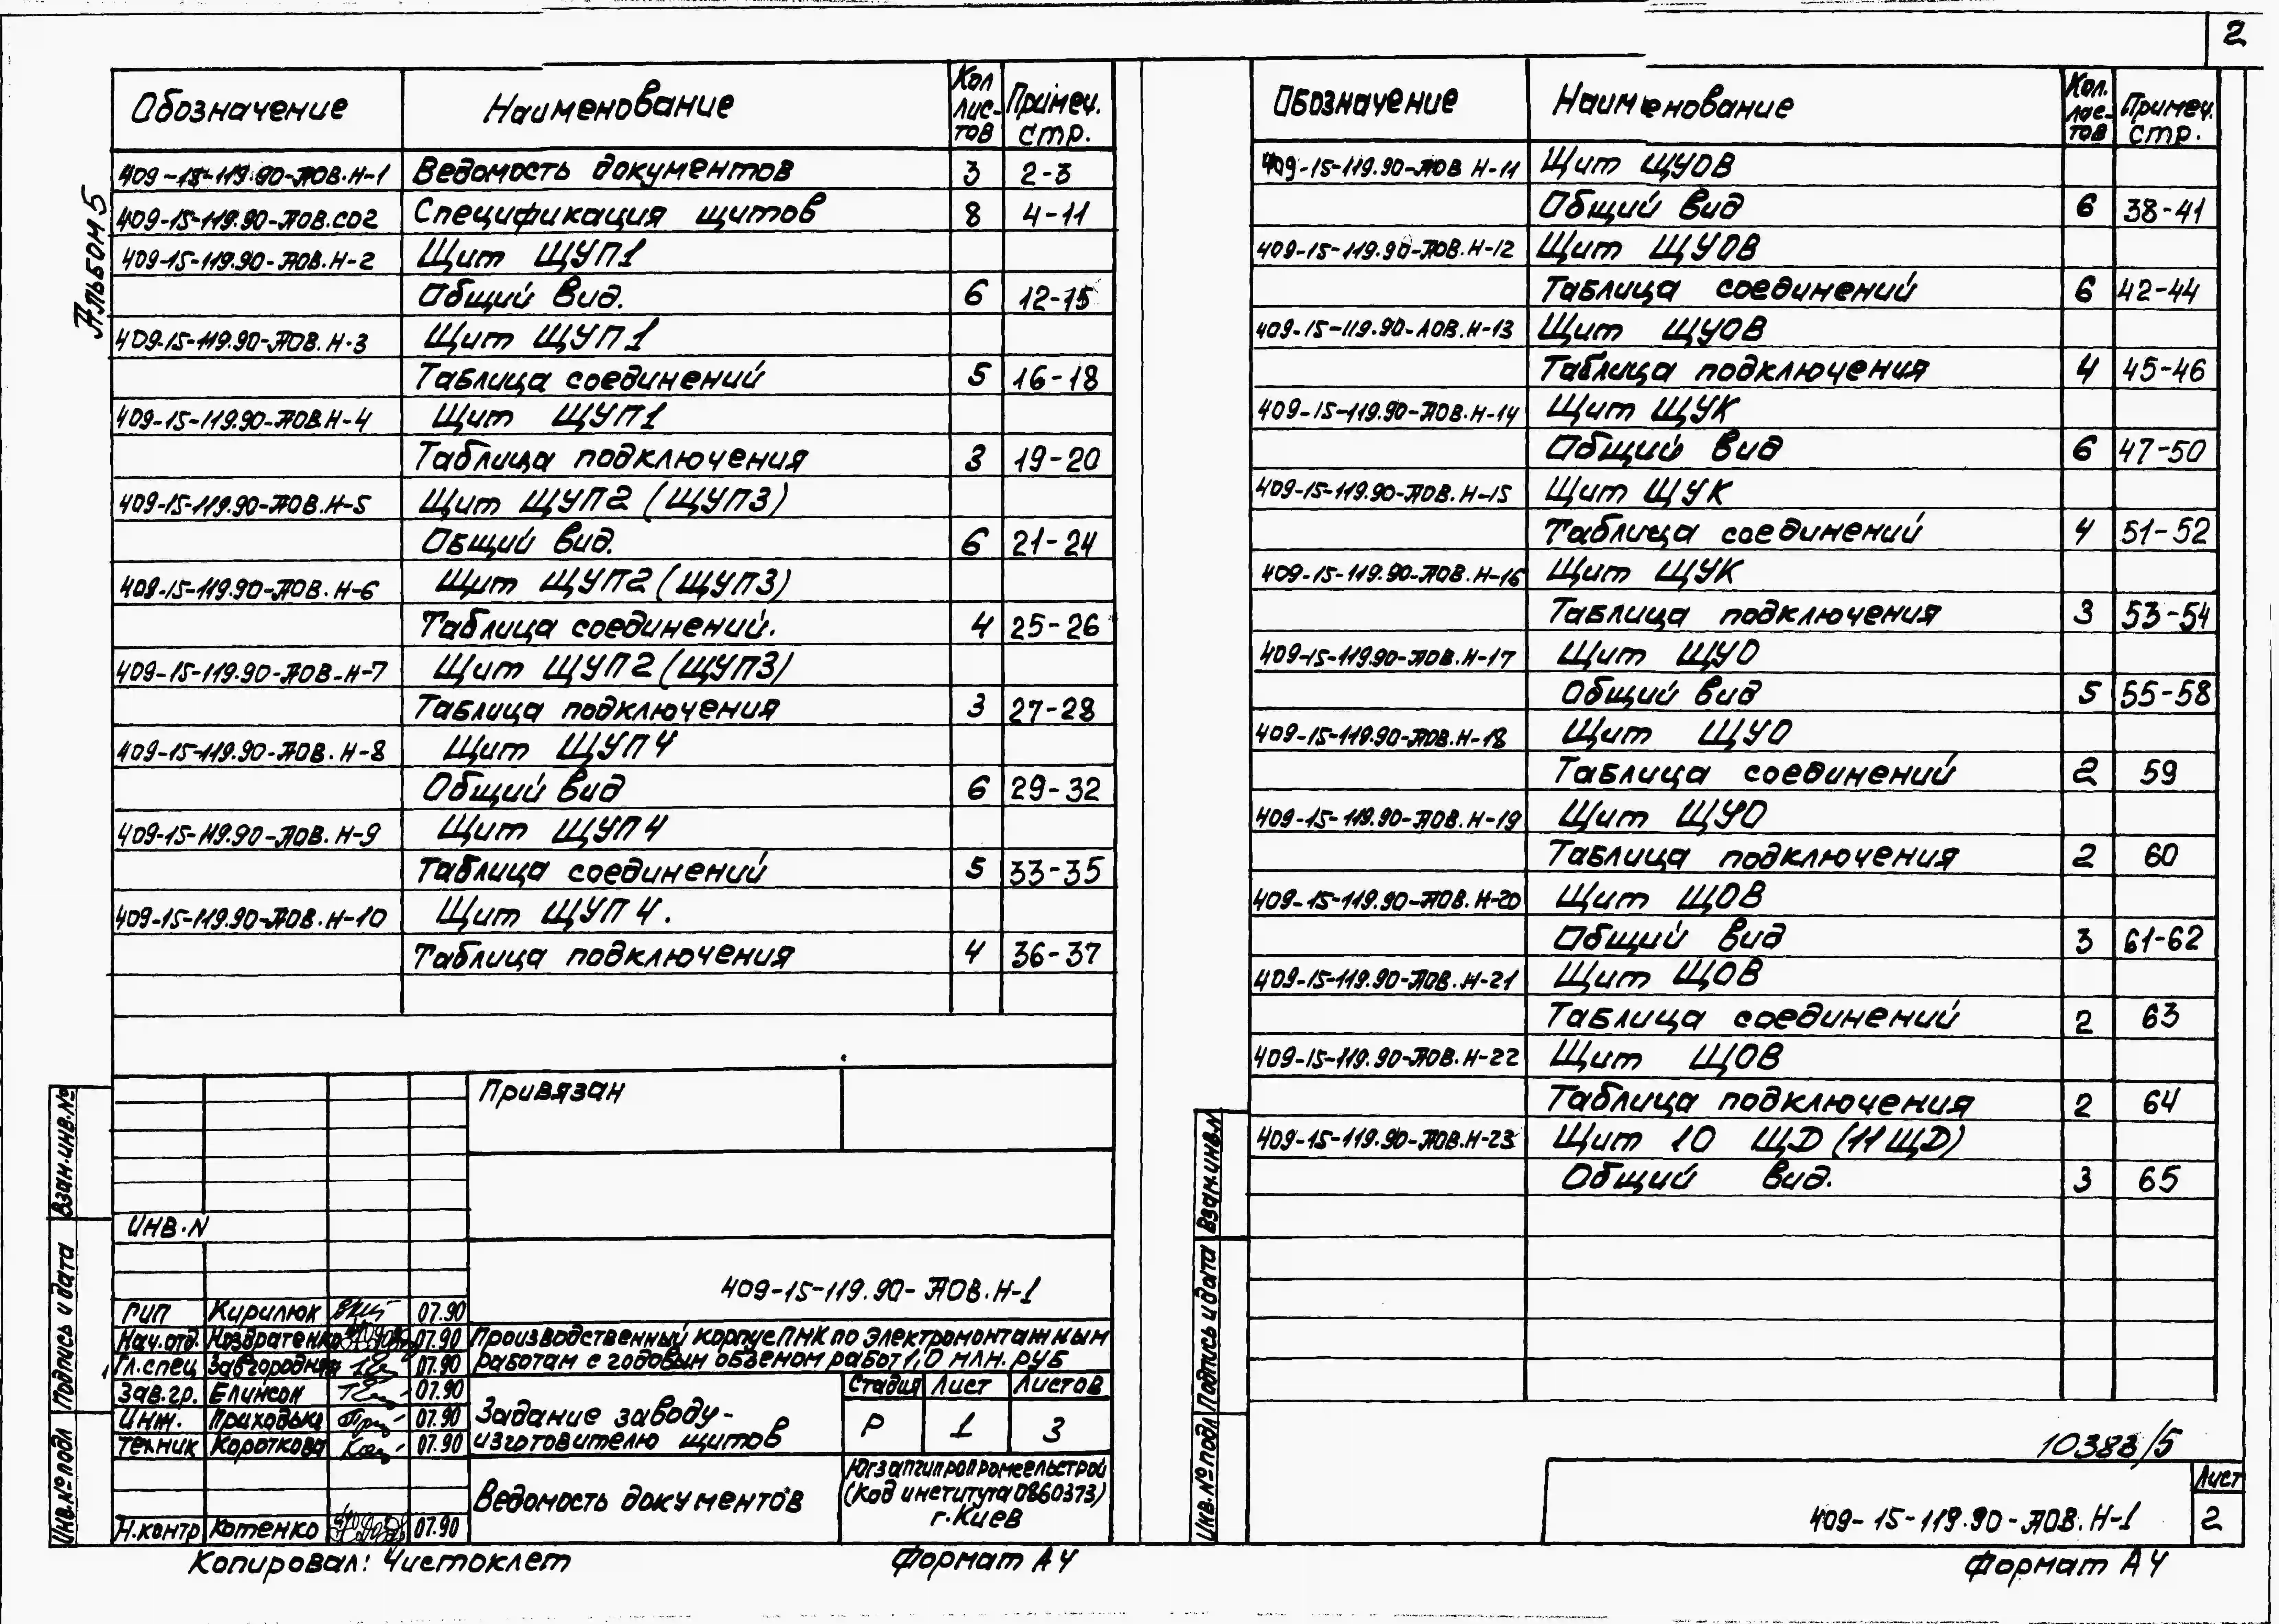 2
Альбом 5
Обозначение Наименование Кол листов Примеч. стр.
409-15-119.90-АОВ.Н-1 Ведомость документов 3 2-3
409-15-119.90-АОВ.СО2 Спецификация щитов 8 4-11
409-15-119.90-АОВ.Н-2 Щит ЩУП1
Общий вид. 6 12-15
409-15-119.90-АОВ.Н-3 Щит ЩУП1
Таблица соединений 5 16-18
409-15-119.90-АОВ.Н-4 Щит ЩУП1
Таблица подключения 3 19-20
409-15-119.90-АОВ.Н-5 Щит ЩУП2 (ЩУП3)
Общий вид. 6 21-24
409-15-119.90-АОВ.Н-6 Щит ЩУП2 (ЩУП3)
Таблица соединений. 4 25-26
409-15-119.90-АОВ-Н-7 Щит ЩУП2 (ЩУП3)
Таблица подключения 3 27-28
409-15-119.90-АОВ.Н-8 Щит ЩУП4
Общий вид 6 29-32
409-15-119.90-АОВ.Н-9 Щит ЩУП4
Таблица соединений 5 33-35
409-15-119.90-АОВ.Н-10 Щит ЩУП4.
Таблица подключения 4 36-37
Привязан
ИНВ.N
409-15-119.90-АОВ.Н-1
ГИП Кирилюк 07.90
Нач.отд. Ноздратенко 07.90
Гл.спец Завгородняя 07.90
Зав.гр. Елинсон 07.90
Инж. Приходько 07.90
Техник Короткова 07.90
Н.контр Котенко 07.90
Производственный корпус ПНК по электромонтажным
работам с годовым объемом работ 1,0 млн. руб
Задание заводу-
изготовителю щитов
Стадия Лист Листов
Р 1 3
Ведомость документов
Югзапгипропромсельстрой
(Код института 0860373)
г.Киев
Взам.инв.№
Подпись и дата
Инв.№подл
Копировал: Чистоклет
Формат А4
Обозначение Наименование Кол. листов Примеч. стр.
409-15-119.90-АОВ Н-11 Щит ЩУОВ
Общий вид 6 38-41
409-15-119.90-АОВ.Н-12 Щит ЩУОВ
Таблица соединений 6 42-44
409-15-119.90-АОВ.Н-13 Щит ЩУОВ
Таблица подключения 4 45-46
409-15-119.90-АОВ.Н-14 Щит ЩУК
Общий вид 6 47-50
409-15-119.90-АОВ.Н-15 Щит ЩУК
Таблица соединений 4 51-52
409-15-119.90-АОВ.Н-16 Щит ЩУК
Таблица подключения 3 53-54
409-15-119.90-АОВ.Н-17 Щит ЩУО
Общий вид 5 55-58
409-15-119.90-АОВ.Н-18 Щит ЩУО
Таблица соединений 2 59
409-15-119.90-АОВ.Н-19 Щит ЩУО
Таблица подключения 2 60
409-15-119.90-АОВ.Н-20 Щит ЩОВ
Общий вид 3 61-62
409-15-119.90-АОВ.Н-21 Щит ЩОВ
Таблица соединений 2 63
409-15-119.90-АОВ.Н-22 Щит ЩОВ
Таблица подключения 2 64
409-15-119.90-АОВ.Н-23 Щит 10 ЩД (11 ЩД)
Общий вид. 3 65
Взам.инв.N
Подпись и дата
Инв.№подл
10383/5
409-15-119.90-АОВ.Н-1
Лист
2
Формат А4